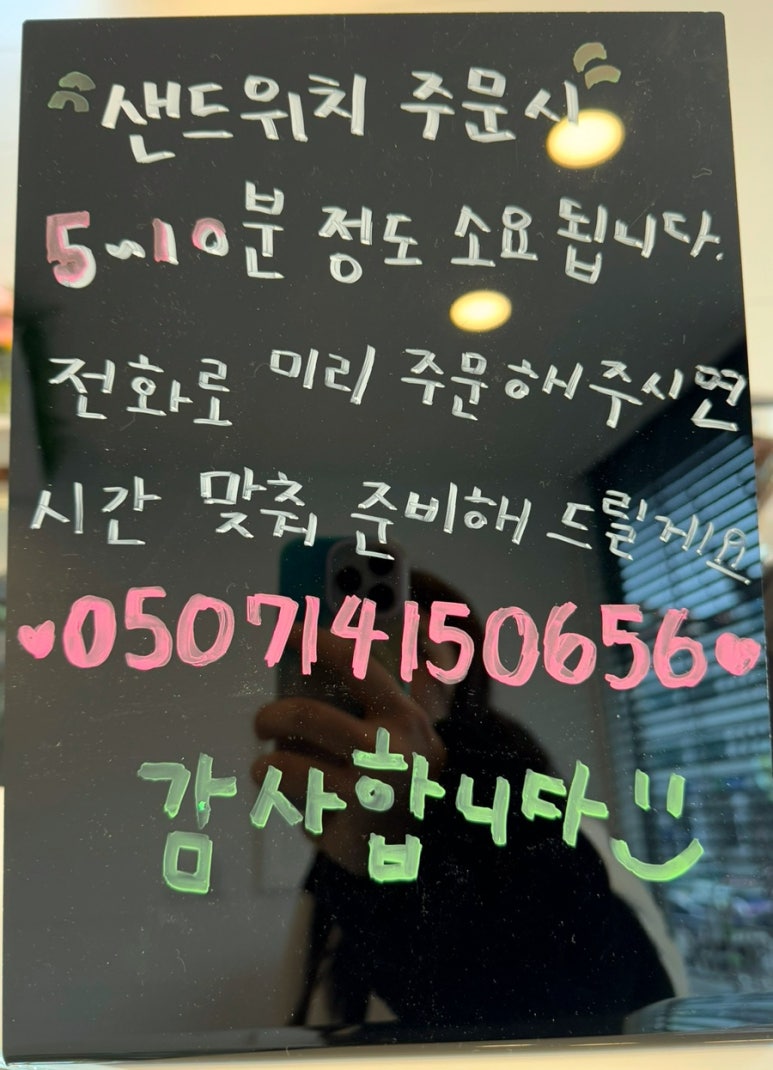 샌드위치 주문시
5~10분 정도 소요됩니다.
전화로 미리 주문해주시면
시간 맞춰 준비해 드릴게요
♥050714150656♥
감사합니다